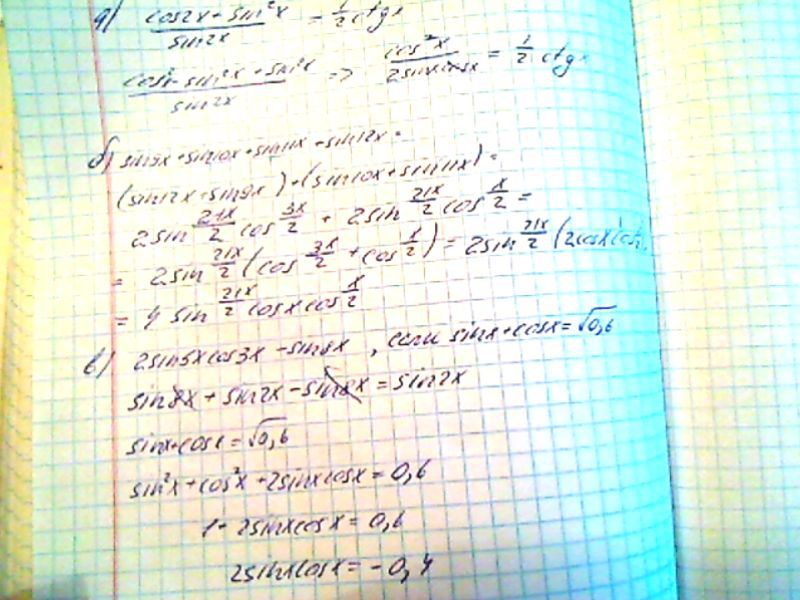 а) (cos2x + sin²x)/sin2x = 1/2 ctgx
(cos²x - sin²x + sin²x)/sin2x => cos²x/(2sinxcosx) = 1/2 ctgx
б) sin9x + sin10x + sin11x + sin12x =
(sin12x + sin9x) + (sin10x + sin11x) =
2sin 21x/2 cos 3x/2 + 2sin 21x/2 cos x/2 =
= 2sin 21x/2 (cos 3x/2 + cos x/2) = 2sin 21x/2 (2cosx cos
= 4 sin 21x/2 cosx cos x/2
в) 2sin5xcos3x - sin8x , если sinx + cosx = √0,6
sin8x + sin2x - sin8x = sin2x
sinx + cosx = √0,6
sin²x + cos²x + 2sinxcosx = 0,6
1 + 2sinxcosx = 0,6
2sinxcosx = - 0,4